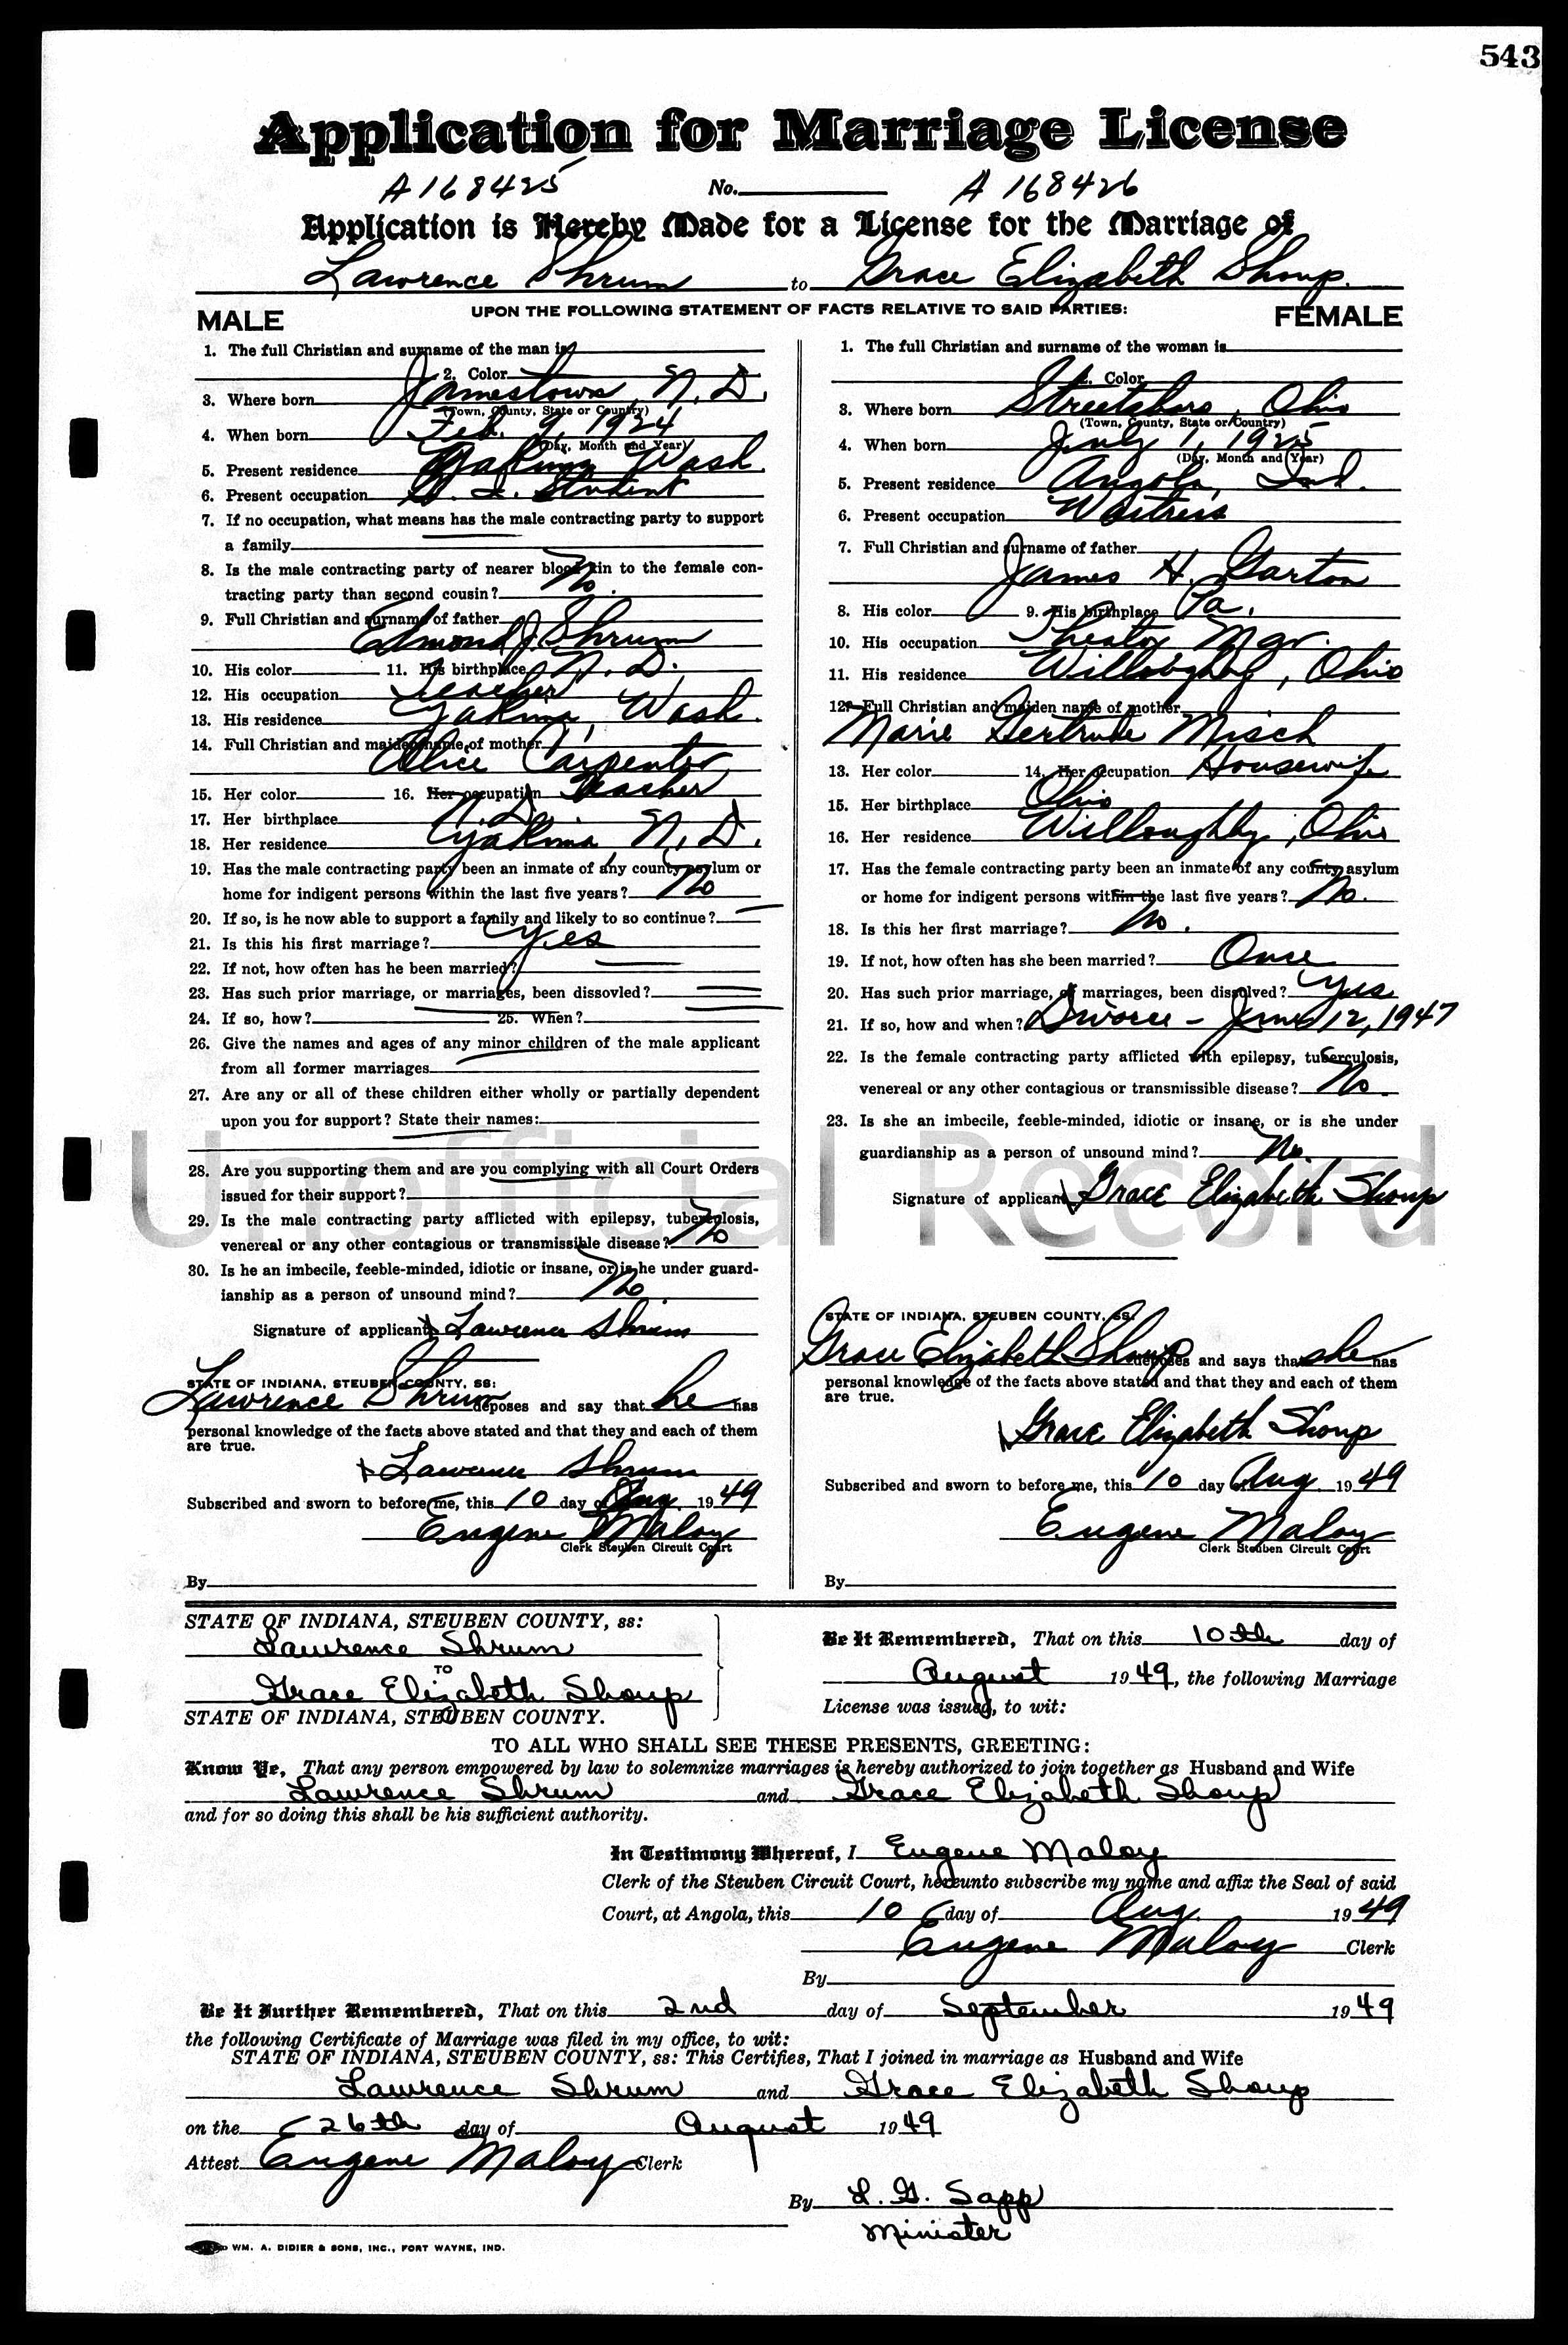 543
Application for Marriage License
A168425 No. A 168426
Application is Hereby Made for a License for the Marriage of
Lawrence Shrum to Grace Elizabeth Shoup.
UPON THE FOLLOWING STATEMENT OF FACTS RELATIVE TO SAID PARTIES:
MALE
1. The full Christian and surname of the man is
2. Color
3. Where born Jamestown, N. D.
(Town, County, State or Country)
4. When born Feb. 9, 1924
(Day, Month and Year)
5. Present residence Yakima Wash.
6. Present occupation G. I. Student
7. If no occupation, what means has the male contracting party to support
a family
8. Is the male contracting party of nearer blood kin to the female con-
tracting party than second cousin? No.
9. Full Christian and surname of father
Edmond J. Shrum
10. His color 11. His birthplace N. D.
12. His occupation Teacher
13. His residence Yakima, Wash.
14. Full Christian and maiden name of mother
Alice Carpenter
15. Her color 16. Her occupation Teacher
17. Her birthplace N. D.
18. Her residence Yakima, N. D.
19. Has the male contracting party been an inmate of any county asylum or
home for indigent persons within the last five years? No
20. If so, is he now able to support a family and likely to so continue?
21. Is this his first marriage? Yes
22. If not, how often has he been married?
23. Has such prior marriage, or marriages, been dissovled?
24. If so, how? 25. When?
26. Give the names and ages of any minor children of the male applicant
from all former marriages
27. Are any or all of these children either wholly or partially dependent
upon you for support? State their names:
28. Are you supporting them and are you complying with all Court Orders
issued for their support?
29. Is the male contracting party afflicted with epilepsy, tuberculosis,
venereal or any other contagious or transmissible disease? No
30. Is he an imbecile, feeble-minded, idiotic or insane, or is he under guard-
ianship as a person of unsound mind? No
Signature of applicant Lawrence Shrum
STATE OF INDIANA, STEUBEN COUNTY, SS:
Lawrence Shrum deposes and say that he has
personal knowledge of the facts above stated and that they and each of them
are true.
Lawrence Shrum
Subscribed and sworn to before me, this 10 day of Aug. 1949
Eugene Maloy
Clerk Steuben Circuit Court
By
FEMALE
1. The full Christian and surname of the woman is
2. Color
3. Where born Streetsboro, Ohio
(Town, County, State or Country)
4. When born July 1, 1925
(Day, Month and Year)
5. Present residence Angola, Ind.
6. Present occupation Waitress
7. Full Christian and surname of father
James H. Garton
8. His color 9. His birthplace Pa.
10. His occupation Theater Mgr.
11. His residence Willoughby, Ohio
12. Full Christian and maiden name of mother
Marie Gertrude Misch
13. Her color 14. Her occupation Housewife
15. Her birthplace Ohio
16. Her residence Willoughby, Ohio
17. Has the female contracting party been an inmate of any county asylum
or home for indigent persons within the last five years? No.
18. Is this her first marriage? No.
19. If not, how often has she been married? Once
20. Has such prior marriage, of marriages, been dissolved? Yes
21. If so, how and when? Divorce - June 12, 1947
22. Is the female contracting party afflicted with epilepsy, tuberculosis,
venereal or any other contagious or transmissible disease? No.
23. Is she an imbecile, feeble-minded, idiotic or insane, or is she under
guardianship as a person of unsound mind? No.
Signature of applicant Grace Elizabeth Shoup
STATE OF INDIANA, STEUBEN COUNTY, SS:
Grace Elizabeth Shoup deposes and says that she has
personal knowledge of the facts above stated and that they and each of them
are true.
Grace Elizabeth Shoup
Subscribed and sworn to before me, this 10 day of Aug. 1949
Eugene Maloy
Clerk Steuben Circuit Court
By
Unofficial Record
STATE OF INDIANA, STEUBEN COUNTY, ss:
Lawrence Shrum
TO
Grace Elizabeth Shoup
STATE OF INDIANA, STEUBEN COUNTY.
Be It Remembered, That on this 10th day of
August 1949, the following Marriage
License was issued, to wit:
TO ALL WHO SHALL SEE THESE PRESENTS, GREETING:
Know Ye, That any person empowered by law to solemnize marriages is hereby authorized to join together as Husband and Wife
Lawrence Shrum and Grace Elizabeth Shoup
and for so doing this shall be his sufficient authority.
In Testimony Whereof, I Eugene Maloy
Clerk of the Steuben Circuit Court, hereunto subscribe my name and affix the Seal of said
Court, at Angola, this 10 day of Aug. 1949
Eugene Maloy Clerk
By
Be It Further Remembered, That on this 2nd day of September 1949
the following Certificate of Marriage was filed in my office, to wit:
STATE OF INDIANA, STEUBEN COUNTY, ss: This Certifies, That I joined in marriage as Husband and Wife
Lawrence Shrum and Grace Elizabeth Shoup
on the 26th day of August 1949
Attest Eugene Maloy Clerk
By L. G. Sapp
Minister
WM. A. DIDIER & SONS, INC., FORT WAYNE, IND.